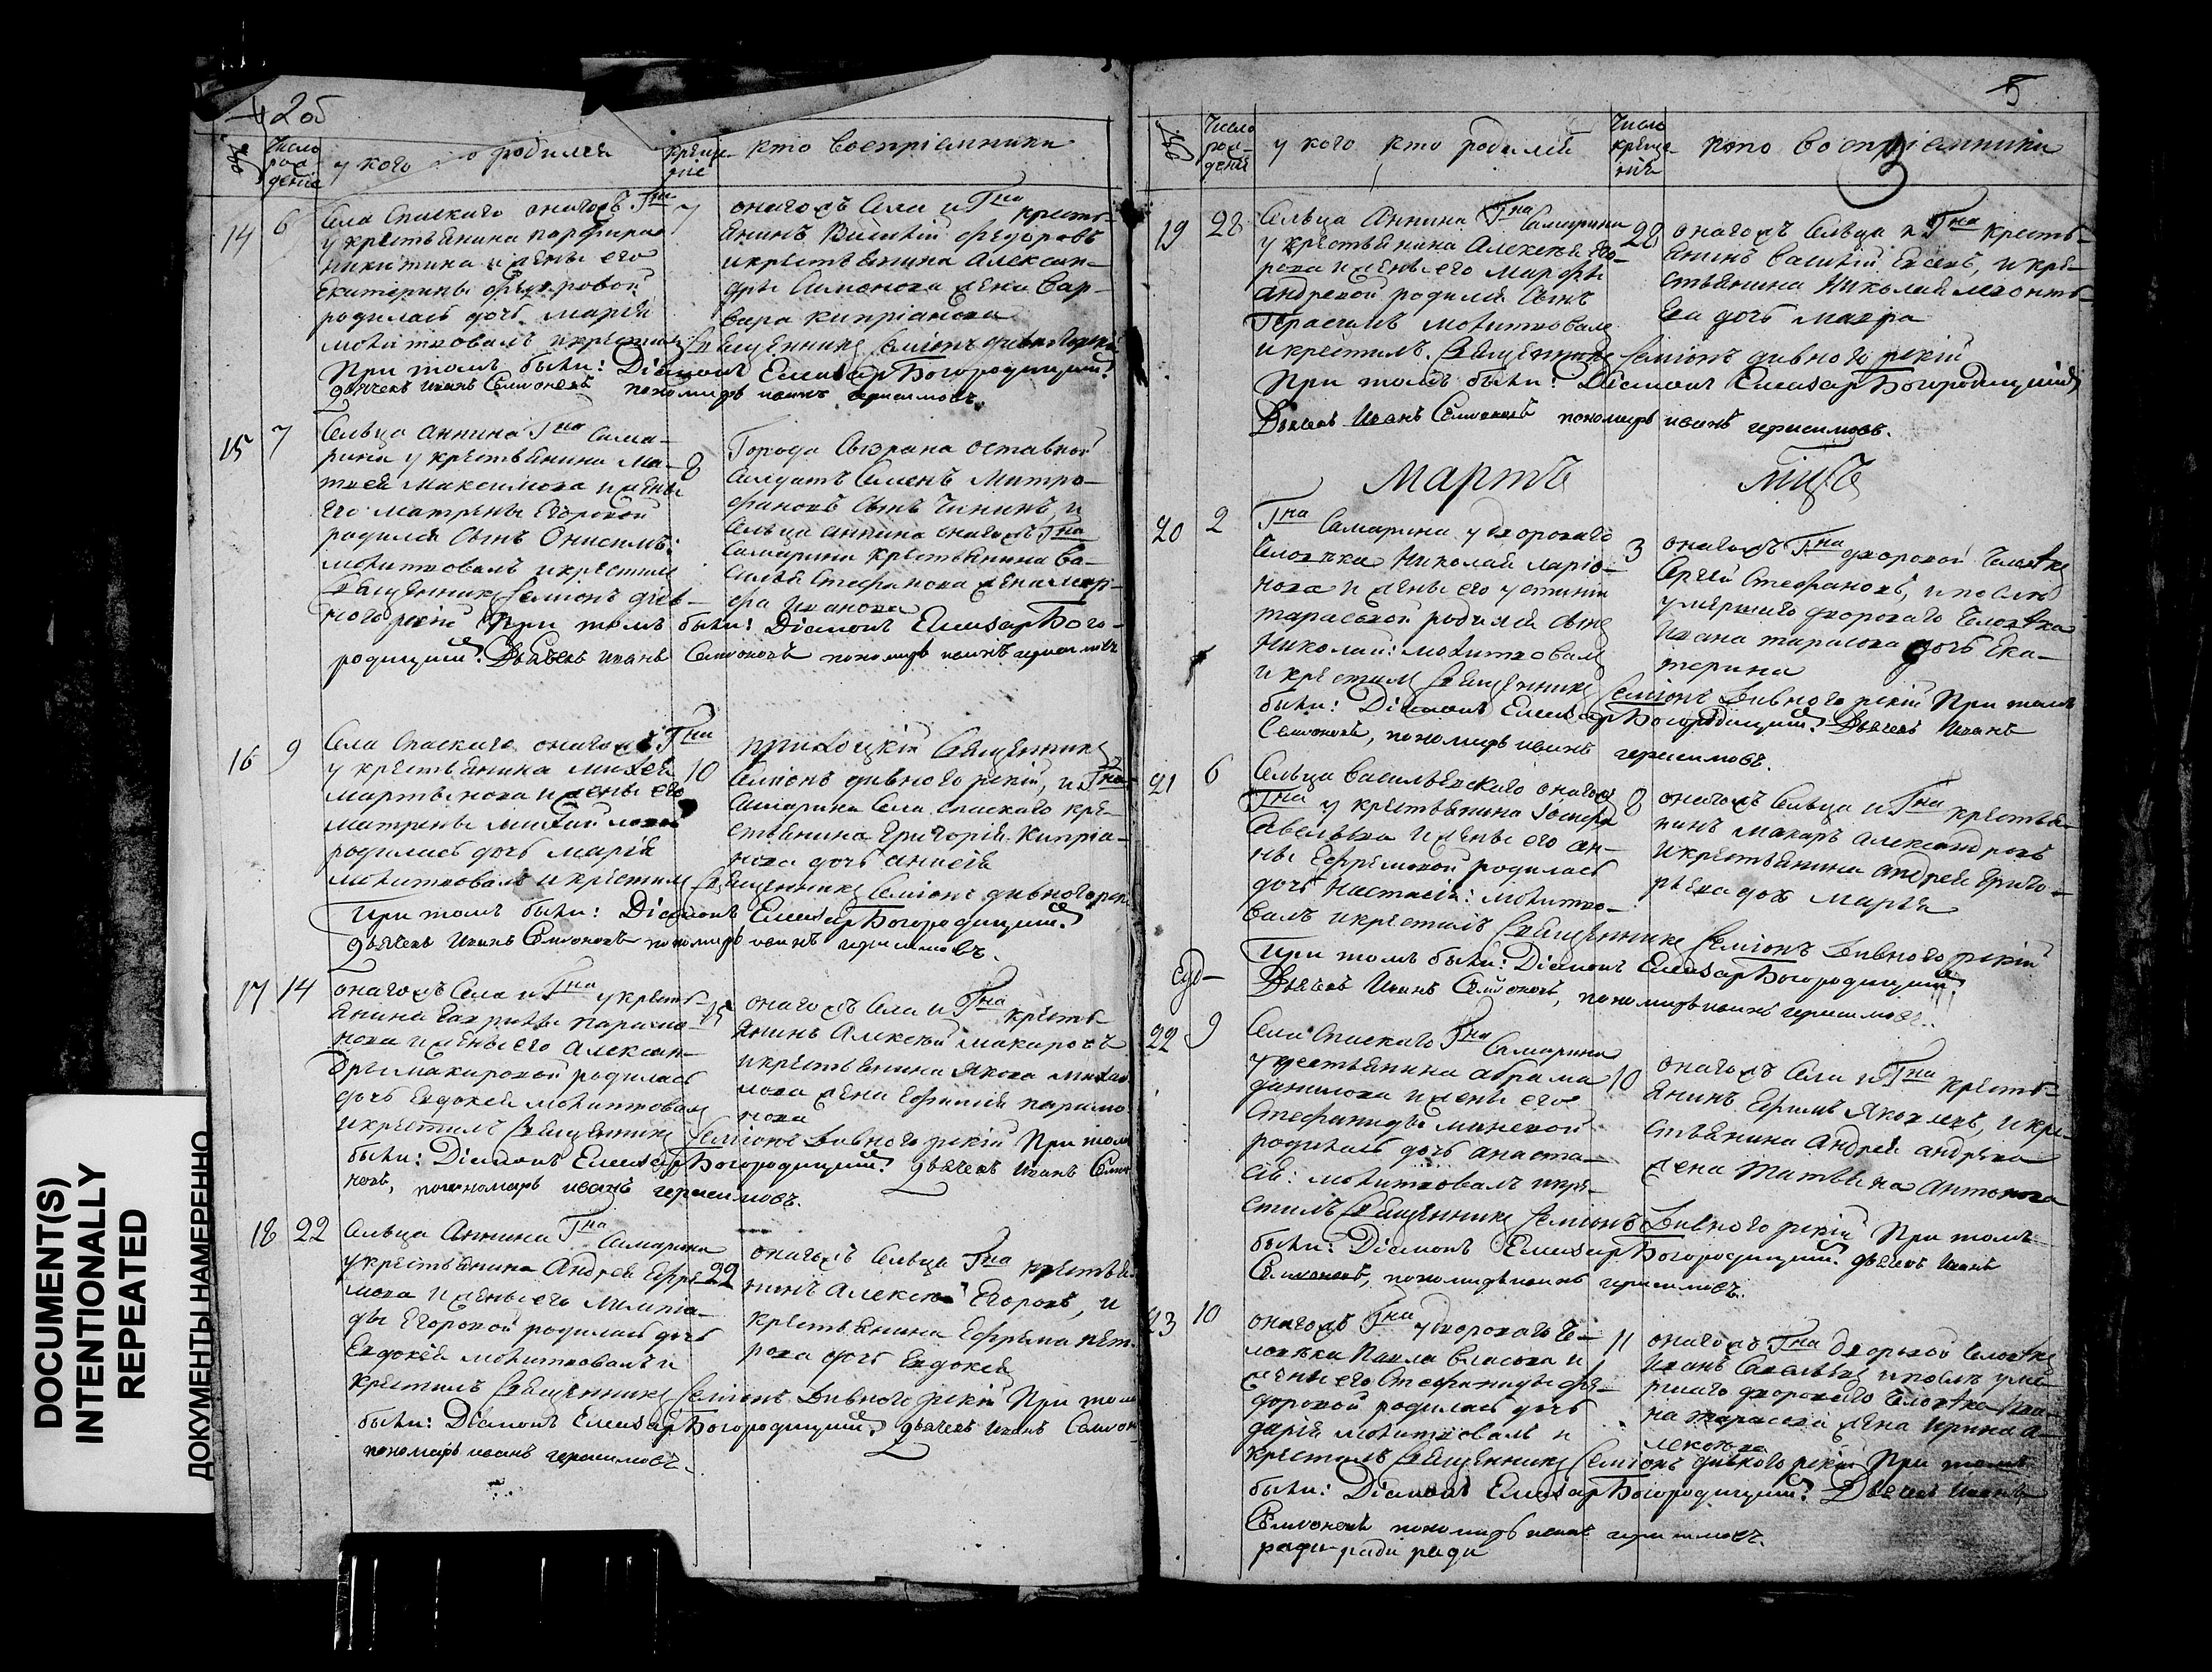 4 2об
число рождение
у кого кто родился
крещение
кто восприемники
14
6
Села Спаскаго оногожъ Гна
у крестьянина парфирия
никитина и жены его
Екатерины федоровой
родилась дочь марія
молитвовалъ и крестилъ Священникъ Семіонъ дивногорскій
При томъ были: Діаконъ Елиазаръ Богородицкий
дьячекъ иванъ Семионовъ пономарь иванъ герасимовъ.
7
оногожъ Села и Гна кресть-
янинъ Василій федоровъ
и крестьянина Алексан-
дры Симонова жена Вар-
вара Кипріанова
15
7
Сельца аннина Гна Сама-
рина у крестьянина Ма-
твея Максимова и жены
его матрены Егоровой
родился сынъ Онисимъ:
молитвовалъ и крестилъ
Священникъ Семіонъ див-
ногорскій При томъ были: Діаконъ Елиазаръ Бого-
родицкий. Дьячекъ иванъ Семионовъ пономарь иванъ герасимовъ
8
Города Сызрана оставной
Салдатъ Семенъ Митро-
фановъ сынъ Чининъ, и
Сельца аннина оногожъ Гна
Самарина крестьянина Ва-
силья Стефанова жена мар-
фа Иванова
16
9
Села Спаскаго оногожъ Гна
у крестьянина михея
мартынова и жены его
матрены михайловой
родилась дочь марія
молитвовалъ и крестилъ Священникъ Семіонъ дивногорск
При томъ были: Діаконъ Елиазаръ Богородицкий
дьячекъ Иванъ Семионовъ пономарь иванъ герасимовъ.
10
приходцкій Священникъ
Семіонъ дивногорскій, и Гна
Самарина Села Спаскаго кре-
стьянина Григорія Кипріа-
нова дочь анисія
17
14
оногожъ Села и Гна у кресть-
янина Гаврилы парамо-
нова и жены его Алексан-
дры макаровой родилась
дочь Евдокея молитвовалъ
и крестилъ Священникъ Семіонъ Дивногорскій При томъ
были: Діаконъ Елиазаръ Богородицкий дьячекъ Иванъ Семио
новъ, пономарь иванъ герасимовъ.
15
оногожъ Села и Гна кресть-
янинъ Алексей макаровъ
и крестьянина Якова михай
лова жена Ефимія парамо
нова
18
22
Сельца Аннина Гна Самарина
у крестьянина Андрея Ефре-
мова и жены его лимпіа-
ды Егоровой родилась дочь
Евдокея молитвовалъ и
крестилъ Священникъ Семіонъ Дивногорскій При томъ
были: Діаконъ Елиазаръ Богородицкий дьячекъ Иванъ Семион
пономарь иванъ герасимовъ.
22
оногожъ Сельца Гна крестья
нинъ Алексей Егоровъ, и
крестьянина Ефрема пет-
рова дочь Евдокея
5
3
Число рождения
у кого кто родился
Число крещения
кто восприемники
19
28
Сельца Аннина Гна Самарина
у крестьянина Алексея Его-
рова и жены его Марфы
андревой родился сынъ
Герасимъ молитвовалъ
и крестилъ. Священникъ Семіонъ дивногорскій
При томъ были: Діаконъ Елиазаръ Богородицкий
Дьячекъ Иванъ Семионовъ пономарь иванъ герасимовъ.
28
оногожъ Сельца и Гна кресть-
янинъ василій Евсевъ, и кре-
стьянина Николая леонть-
ева дочь мавра
мартъ мцъ
20
2
Гна Самарина у двороваго
человека Николая ларіо-
нова и жены его устиніи
тарасовой родился сынъ
Николай: молитвовалъ
и крестилъ Священникъ Семіонъ Дивногорскій При томъ
были: Діаконъ Елиазаръ Богородицкий Дьячекъ Иванъ
Семионовъ, пономарь иванъ герасимовъ.
3
оногожъ Гна дворовой человекъ
Сергей Стефановъ, и послѣ
умершаго двороваго человека
Ивана тарасова дочь Ека-
терина
21
6
Сельца васильевскаго оногожъ
Гна у крестьянина Іосифа
Савельева и жены его ан-
ны Ефремовой родилась
дочь настасія: молитво-
валъ и крестилъ Священникъ Семіонъ Дивногорскій
При томъ были: Діаконъ Елиазаръ Богородицкий
Дьячекъ Иванъ Семионовъ, пономарь иванъ герасимовъ.
8
оногожъ Сельца и Гна крестья-
нинъ макаръ александровъ
и крестьянина андрея Григо-
рьева дочь марія
22
9
Села Спаскаго Гна Самарина
у крестьянина абрама
данилова и жены его
Стефаниды минеевой
родилась дочь анаста-
сія: молитвовалъ и кре-
стилъ Священникъ Семіонъ Дивногорскій При томъ
были: Діаконъ Елиазаръ Богородицкий дьячекъ Иванъ
Семионовъ, пономарь иванъ герасимовъ.
10
оногожъ Села и Гна кресть-
янинъ Ефимъ Яковлевъ, и кре-
стьянина Андрея андрева
жена Татьяна Антонова
23
10
оногожъ Гна у двороваго че-
ловека Павла Власова и
жены его Стефаниды фе-
доровой родилась дочь
дарія молитвовалъ и
крестилъ Священникъ Семіонъ дивногорскій При томъ
были: Діаконъ Елиазаръ Богородицкий Дьячекъ Иванъ
Семионовъ пономарь иванъ герасимовъ.
ради ради ради
11
оногожъ Гна дворовой человекъ
Иванъ Савельевъ и послѣ уме
ршаго двороваго человека Ива-
на тарасова жена ирина а-
лексеева
DOCUMENT(S)
INTENTIONALLY
REPEATED
ДОКУМЕНТЫ НАМЕРЕННО